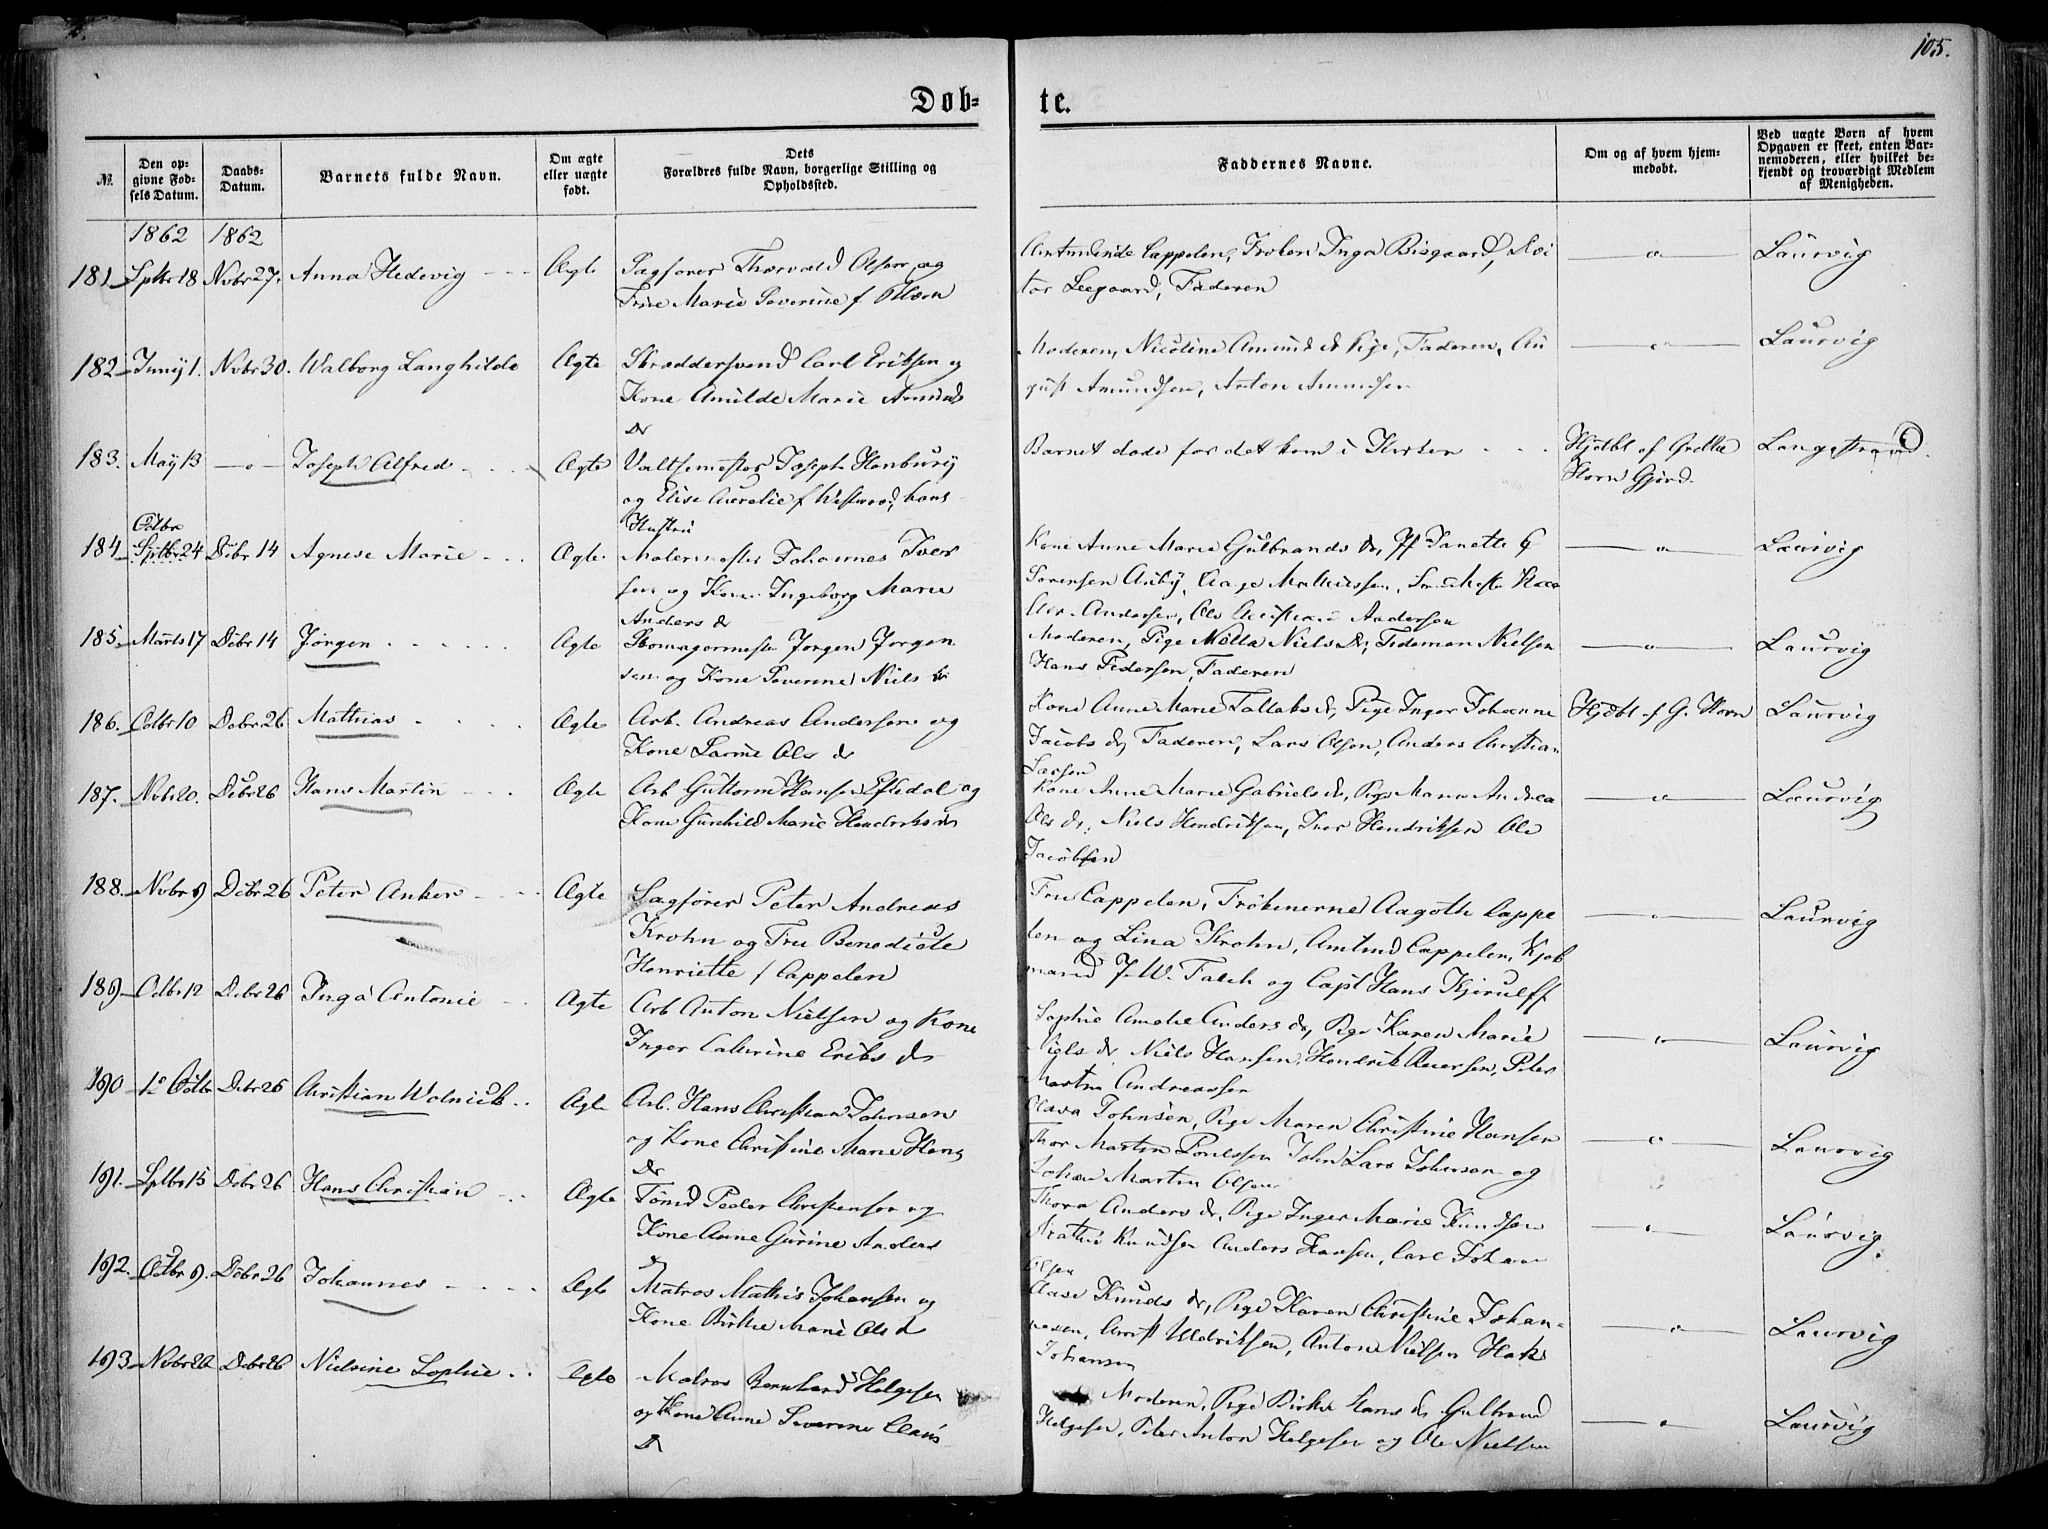 105.
Døb- te.
№.
Den op-
givne Fød-
sels Datum.
Daabs-
Datum.
Barnets fulde Navn.
Om ægte
eller uægte
født.
Dets
Forældres fulde Navn, borgerlige Stilling og
Opholdssted.
Faddernes Navne.
Om og af hvem hjem-
medøbt.
Ved uægte Børn af hvem
Opgaven er skeet, enten Bar-
nemoderen, eller hvilket be-
kjendt og troværdigt Medlem
af Menigheden.
1862 1862
181 Sptbr 18 Novbr 27. Anna Hedevig Ægte Sagfører Thorvald Olsen og
Frue Marie Severine f
Amtmdinde Cappelen, Frøken Inga Bisgaard,
Leegaard, Faderen
Laurvig
182 Junij 1. Novbr 30. Walborg Langhilde Ægte Skræddersvend Carl Eriksen og
Kone Amilde Marie Amunds
dr
Moderen, Nicoline Amunds dr Pige, Faderen, Au
gust Amundsen, Anton Amundsen
Laurvig
183. May 13 —"— Joseph Alfred Ægte Valtsemester Joseph Hanbury
og Elise Aurelie f Westwood, hans
Hustru
Barnet døde før det kom i Kirken
Hjdbt af Grethe
Horn Gjord.
Langestrand.
184 Octbr
Sptbr 24 Decbr 14 Agnese Marie Ægte Malermester Johannes Iver
sen og Kone Ingeborg Marie
Anders dr
Kone Anne Marie Gulbrands dr, Jf Janette G
Sørensen Auby, Aage Mathissen,
Andersen, Ole Christian Andersen
Laurvig
185. Marts 17 Decbr 14 Jørgen Ægte Skomagermestr Jørgen Jørgen
sen og Kone Severine Niels dr
Moderen, Pige Mølla Niels dr, Tideman Nielsen
Hans Pedersen, Faderen
Laurvig
186. Octbr 10 Decbr 26 Mathias Ægte Arb. Andreas Andersen og
Kone Larine Ols dr
Kone Anne Marie Tallaks dr, Pige Inger Johanne
Jacobs dr, Faderen, Lars Olsen, Anders Christian
Larsen
Hjdbt af G. Horn Laurvig
187. Nvbr 20. Decbr 26 Hans Martin Ægte Arb Guttorm Hansen Eftedal og
Kone Gunhild Marie Henderks dr
Kone Anne Marie Gabriels dr, Pige Maren Andrea
Ols dr, Niels Hendriksen, Iver Hendriksen Ole
Jacobsen
Laurvig
188. Nvbr 9 Decbr 26 Peter Anker Ægte Sagfører Peter Andreas
Krohn og Fru Benedicte
Henriette f Cappelen
Fru Cappelen, Frøkenerne Aagoth Cappe
len og Lina Krohn, Amtmd Cappelen, Kjøb
mand J. W. Falch og Capt Hans Kjerulff
Laurvig
189 Octbr 12 Decbr 26 Inga Antonie Ægte Arb Anton Nielsen og Kone
Inger Cathrine Eriks dr
Sophie Amalie Anders dr, Pige Karen Marie
Niels dr Niels Hansen, Hendrik Iversen, Peter
Martin Andreassen
Laurvig
190 12 Octbr Decbr 26 Christian Ægte Arb. Hans Christian Johnsen
og Kone Christine Marie Hans
dr
Johnsen, Pige Maren Christine Hansen
Thor Martin John Lars Johnsen og
Johan Martin Olsen
Laurvig
191. Sptbr 15 Decbr 26 Hans Christian Ægte Tømd Peder Christensen og
Kone Anne Gurine Anders
dr
Thora Anders dr, Pige Inger Marie Knudsen
Knudsen Anders Hansen, Carl Johan
Olsen
Laurvig
192. Octbr 9. Decbr 26 Johannes Ægte Matros Mathis Johansen og
Kone Birthe Marie Ols d
Aase Knuds dr, Pige Karen Christine Johan-
nesen, Christ Uldriksen, Anton Nielsen
Johansen
Laurvig
193 Novbr 22 Decbr 26 Nielsine Sophie Ægte Matros Bernhard Helgesen
og Kone Anne Severine Claus
dr
Moderen, Pige Birthe Hans dr Gulbrand
Helgesen, Peter Anton Helgesen og Ole Nielsen
Laurvig